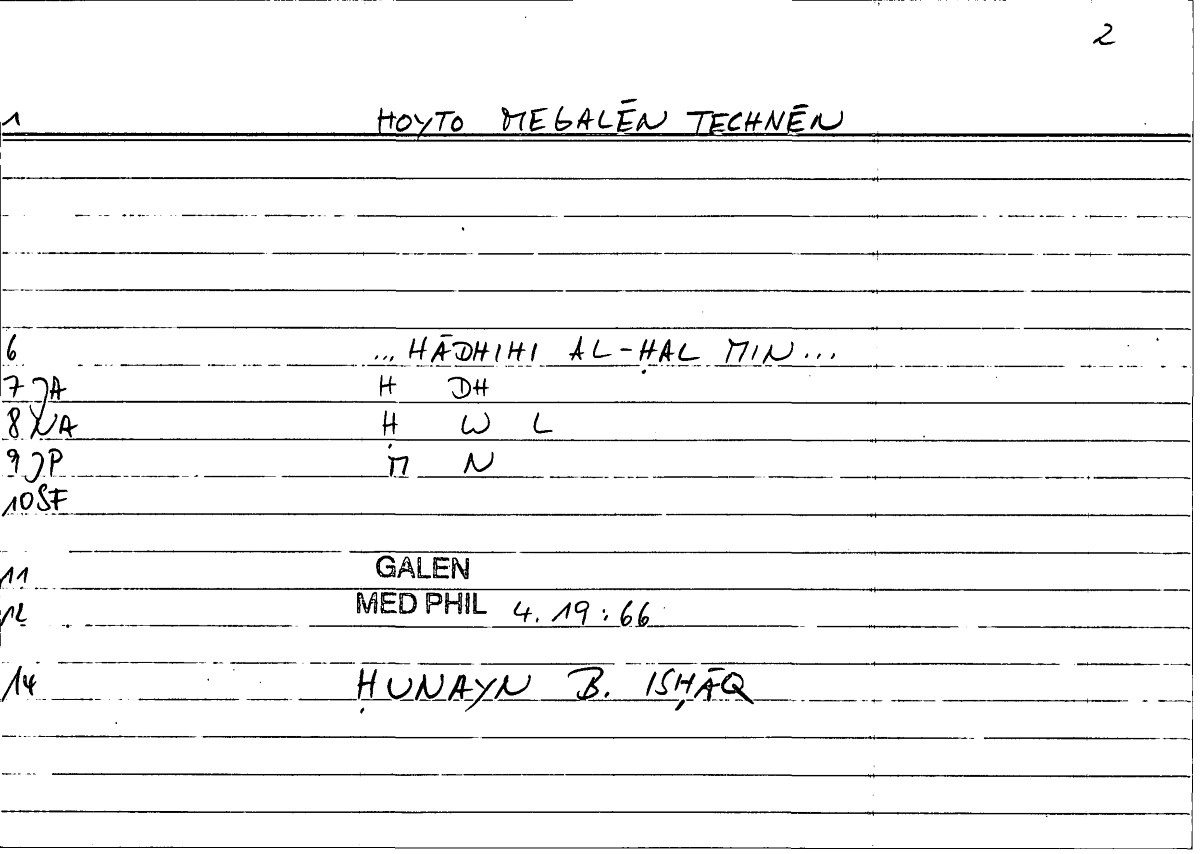 2
1 HOYTO MEGALĒN TECHNĒN
6 ... HĀDHIHI AL-ḤAL MIN...
7 JA H DH
8 NA Ḥ W L
9 JP M N
10 SF
11 GALEN
12 MED PHIL 4. 19 : 66
14 ḤUNAYN B. ISḤĀQ